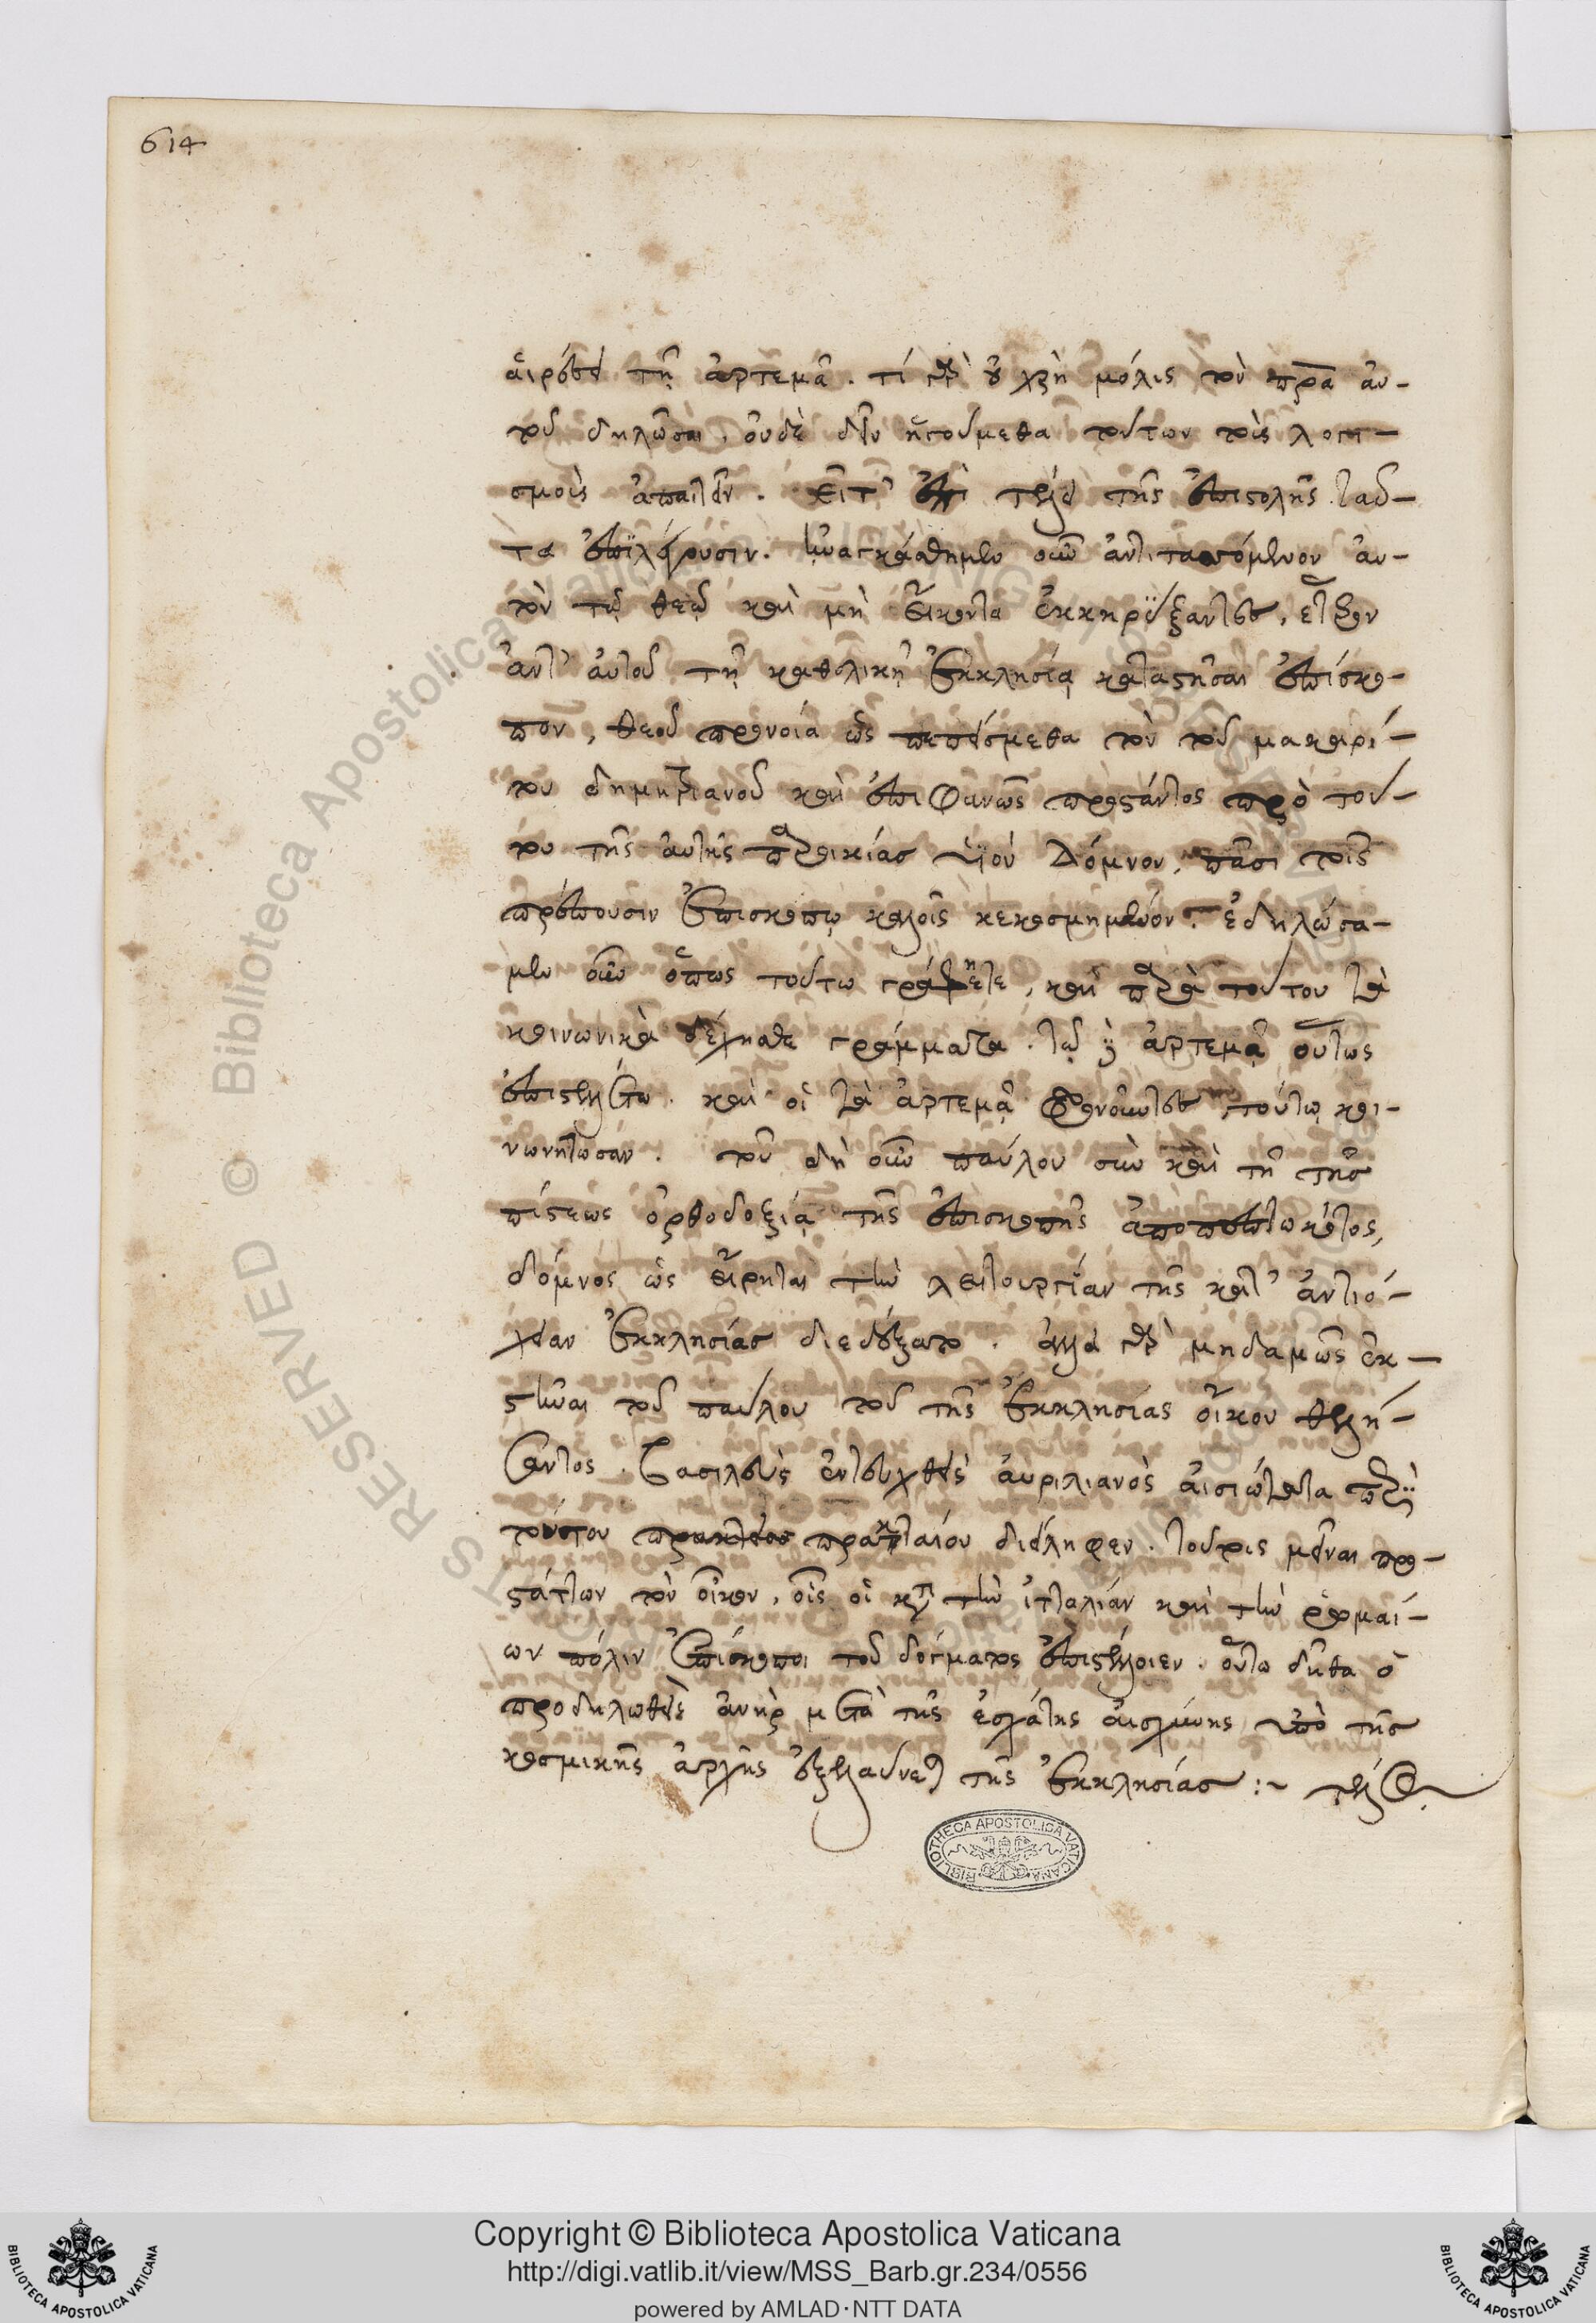 614
αἱρέσει τῇ ἀρτεμᾶ. τί γὰρ οὐ χρὴ μόλις τὸν πρα αυ-
τοῦ δηλῶσαι, οὐδὲν δεῖν ἡγούμεθα τούτων τοὺς λογι-
σμοὺς ἀπαιτεῖν. εἶτ' ἐπὶ τέλει τῆς ἐπιστολῆς ταῦ-
τα ἐπιλέγουσιν. ἠναγκάσθημεν οὖν ἀντιτασσόμενον αὐ-
τὸν τῷ θεῷ καὶ μὴ εἴκοντα ἐκκηρύξαντες, ἕτερον
ἀντ' αὐτοῦ τῇ καθολικῇ ἐκκλησίᾳ καταστῆσαι ἐπίσκο-
πον, θεοῦ προνοίᾳ ὡς πεπείσμεθα τὸν τοῦ μακαρί-
του δημητριανοῦ καὶ ἐπιφανῶς προστάντος πρὸ τού-
του τῆς αὐτῆς παροικίας υἱὸν Δόμνον, πᾶσι τοῖς
πρέπουσιν ἐπισκόπῳ καλοῖς κεκοσμημένον. ἐδηλώσα-
μεν οὖν ὅπως τούτω γράφητε, καὶ παρὰ τούτου τὰ
κοινωνικὰ δέχησθε γράμματα. τῷ δὲ ἀρτεμᾷ οὕτως
ἐπιστελλέτω. καὶ οἱ τὰ ἀρτεμᾶ φρονοῦντες τούτῳ κοι-
νωνήτωσαν. τοῦ δὴ οὖν παύλου σὺν καὶ τῇ τῆς
πίστεως ὀρθοδοξίᾳ τῆς ἐπισκοπῆς ἀποπεπτωκότος,
δόμνος ὡς εἴρηται τὴν λειτουργίαν τῆς κατ' ἀντιό-
χειαν ἐκκλησίας διεδέξατο. ἀλλὰ γὰρ μηδαμῶς ἐκ-
στῆναι τοῦ παύλου τοῦ τῆς ἐκκλησίας οἴκου θελή-
σαντος. βασιλεὺς ἐντευχθεὶς αὐρηλιανὸς αἰσιώτατα περὶ
τοῦ πρακτέου διείληφεν. τούτοις μεῖναι προ-
στάττων τὸν οἶκον, οἷς οἱ κατὰ τὴν ἰταλίαν καὶ τὴν ῥωμαί-
ων πόλιν ἐπίσκοποι τοῦ δόγματος ἐπιστέλλοιεν. οὕτω δῆτα ὁ
προδηλωθεὶς ἀνὴρ μετὰ τῆς ἐσχάτης αἰσχύνης ὑπὸ τῆς
κοσμικῆς ἀρχῆς ἐξελαύνεται τῆς ἐκκλησίας :~ τέλος
BIBLIOTHECA APOSTOLICA VATICANA
Copyright © Biblioteca Apostolica Vaticana
http://digi.vatlib.it/view/MSS_Barb.gr.234/0556
powered by AMLAD·NTT DATA